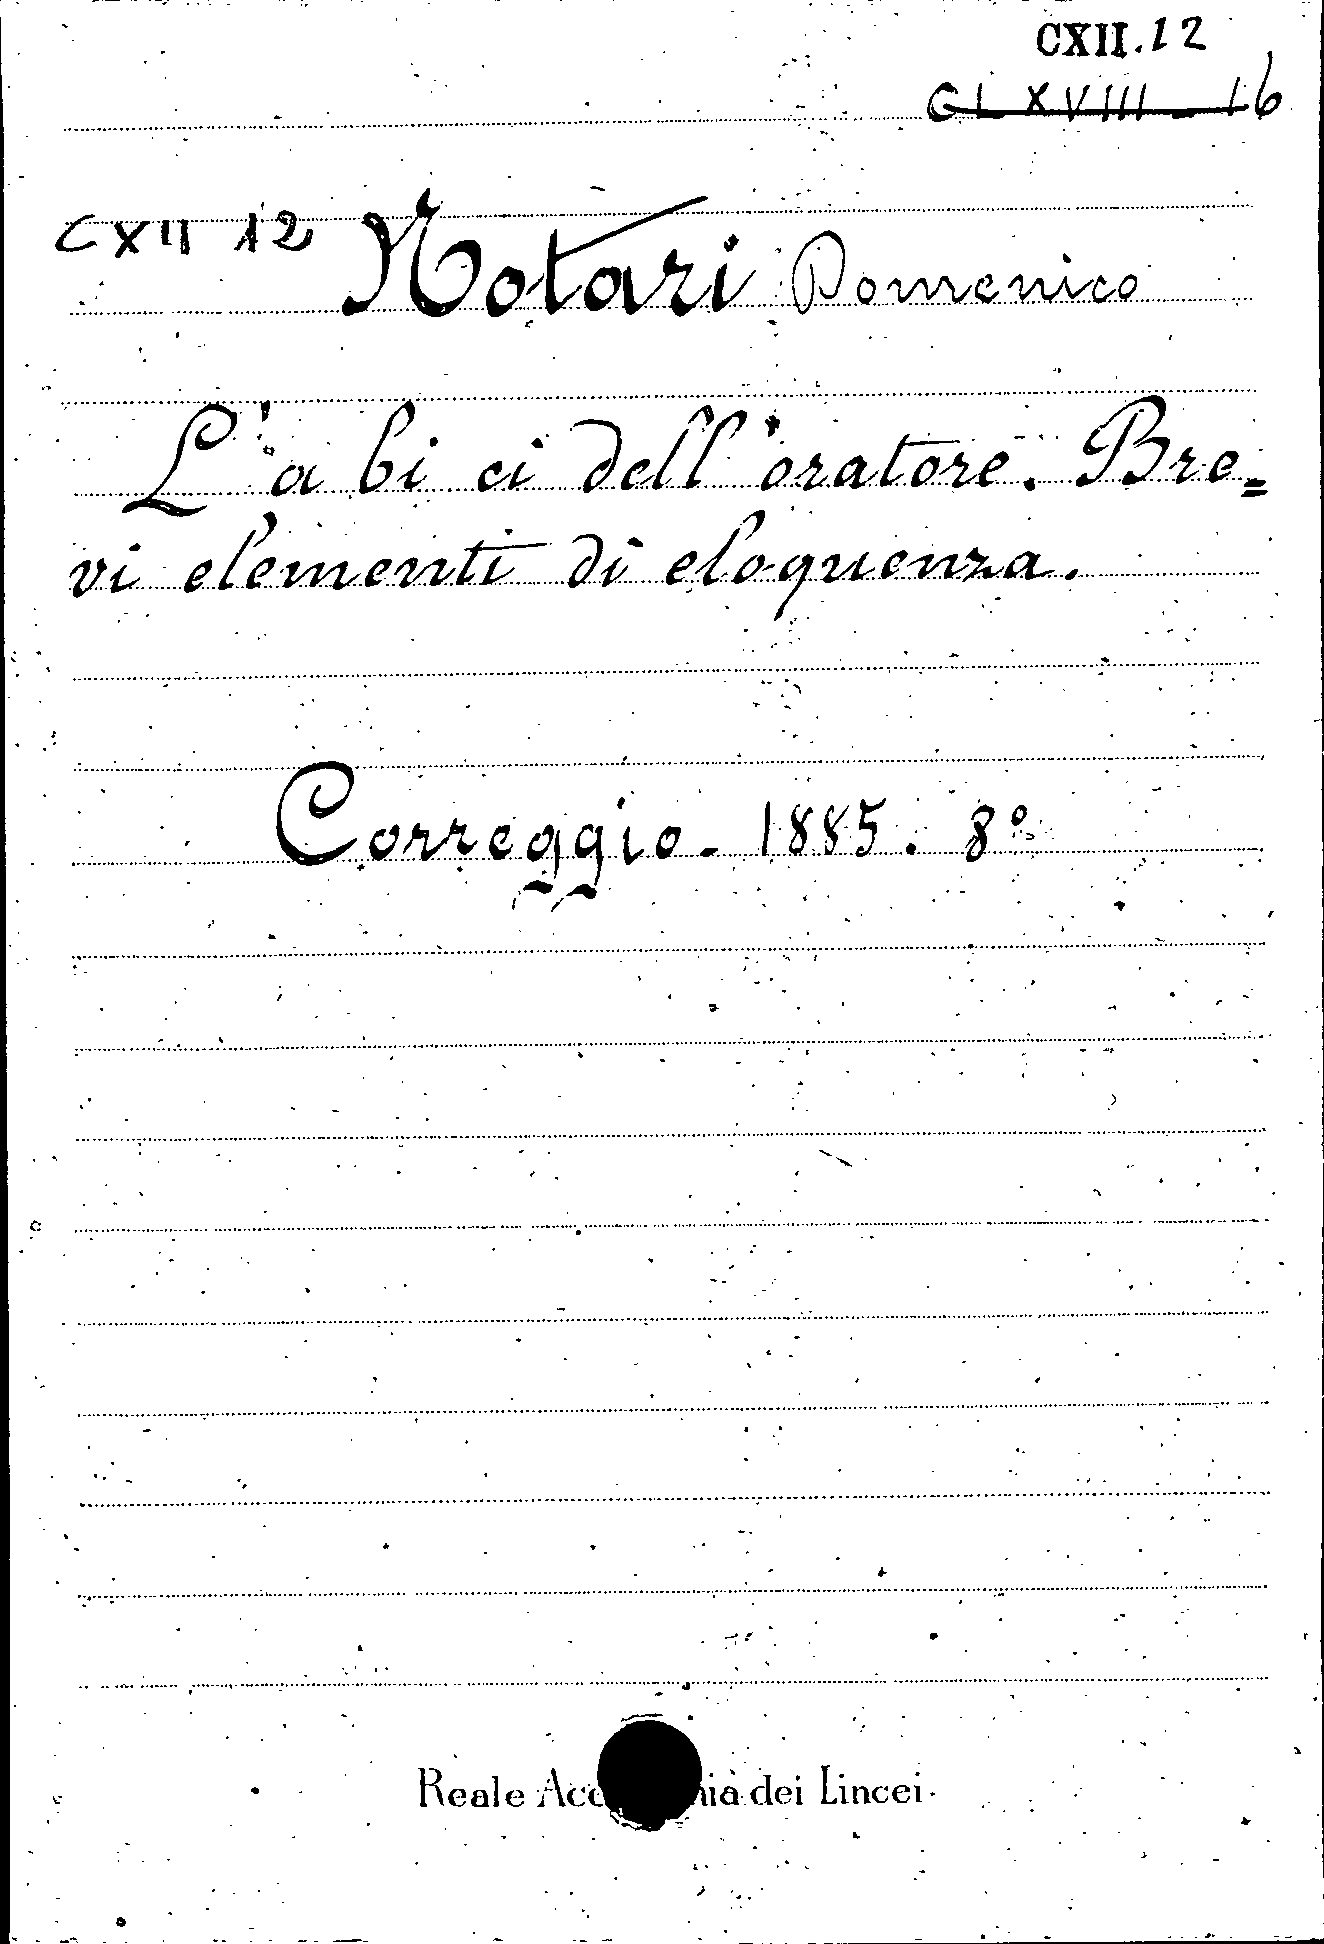 CXII.12
CLXVIII-16
CXII 12 Notari Domenico
L'a bi ci dell'oratore. Bre=
vi elementi di eloquenza.
Correggio - 1885. 8°
Reale Acc dei Lincei